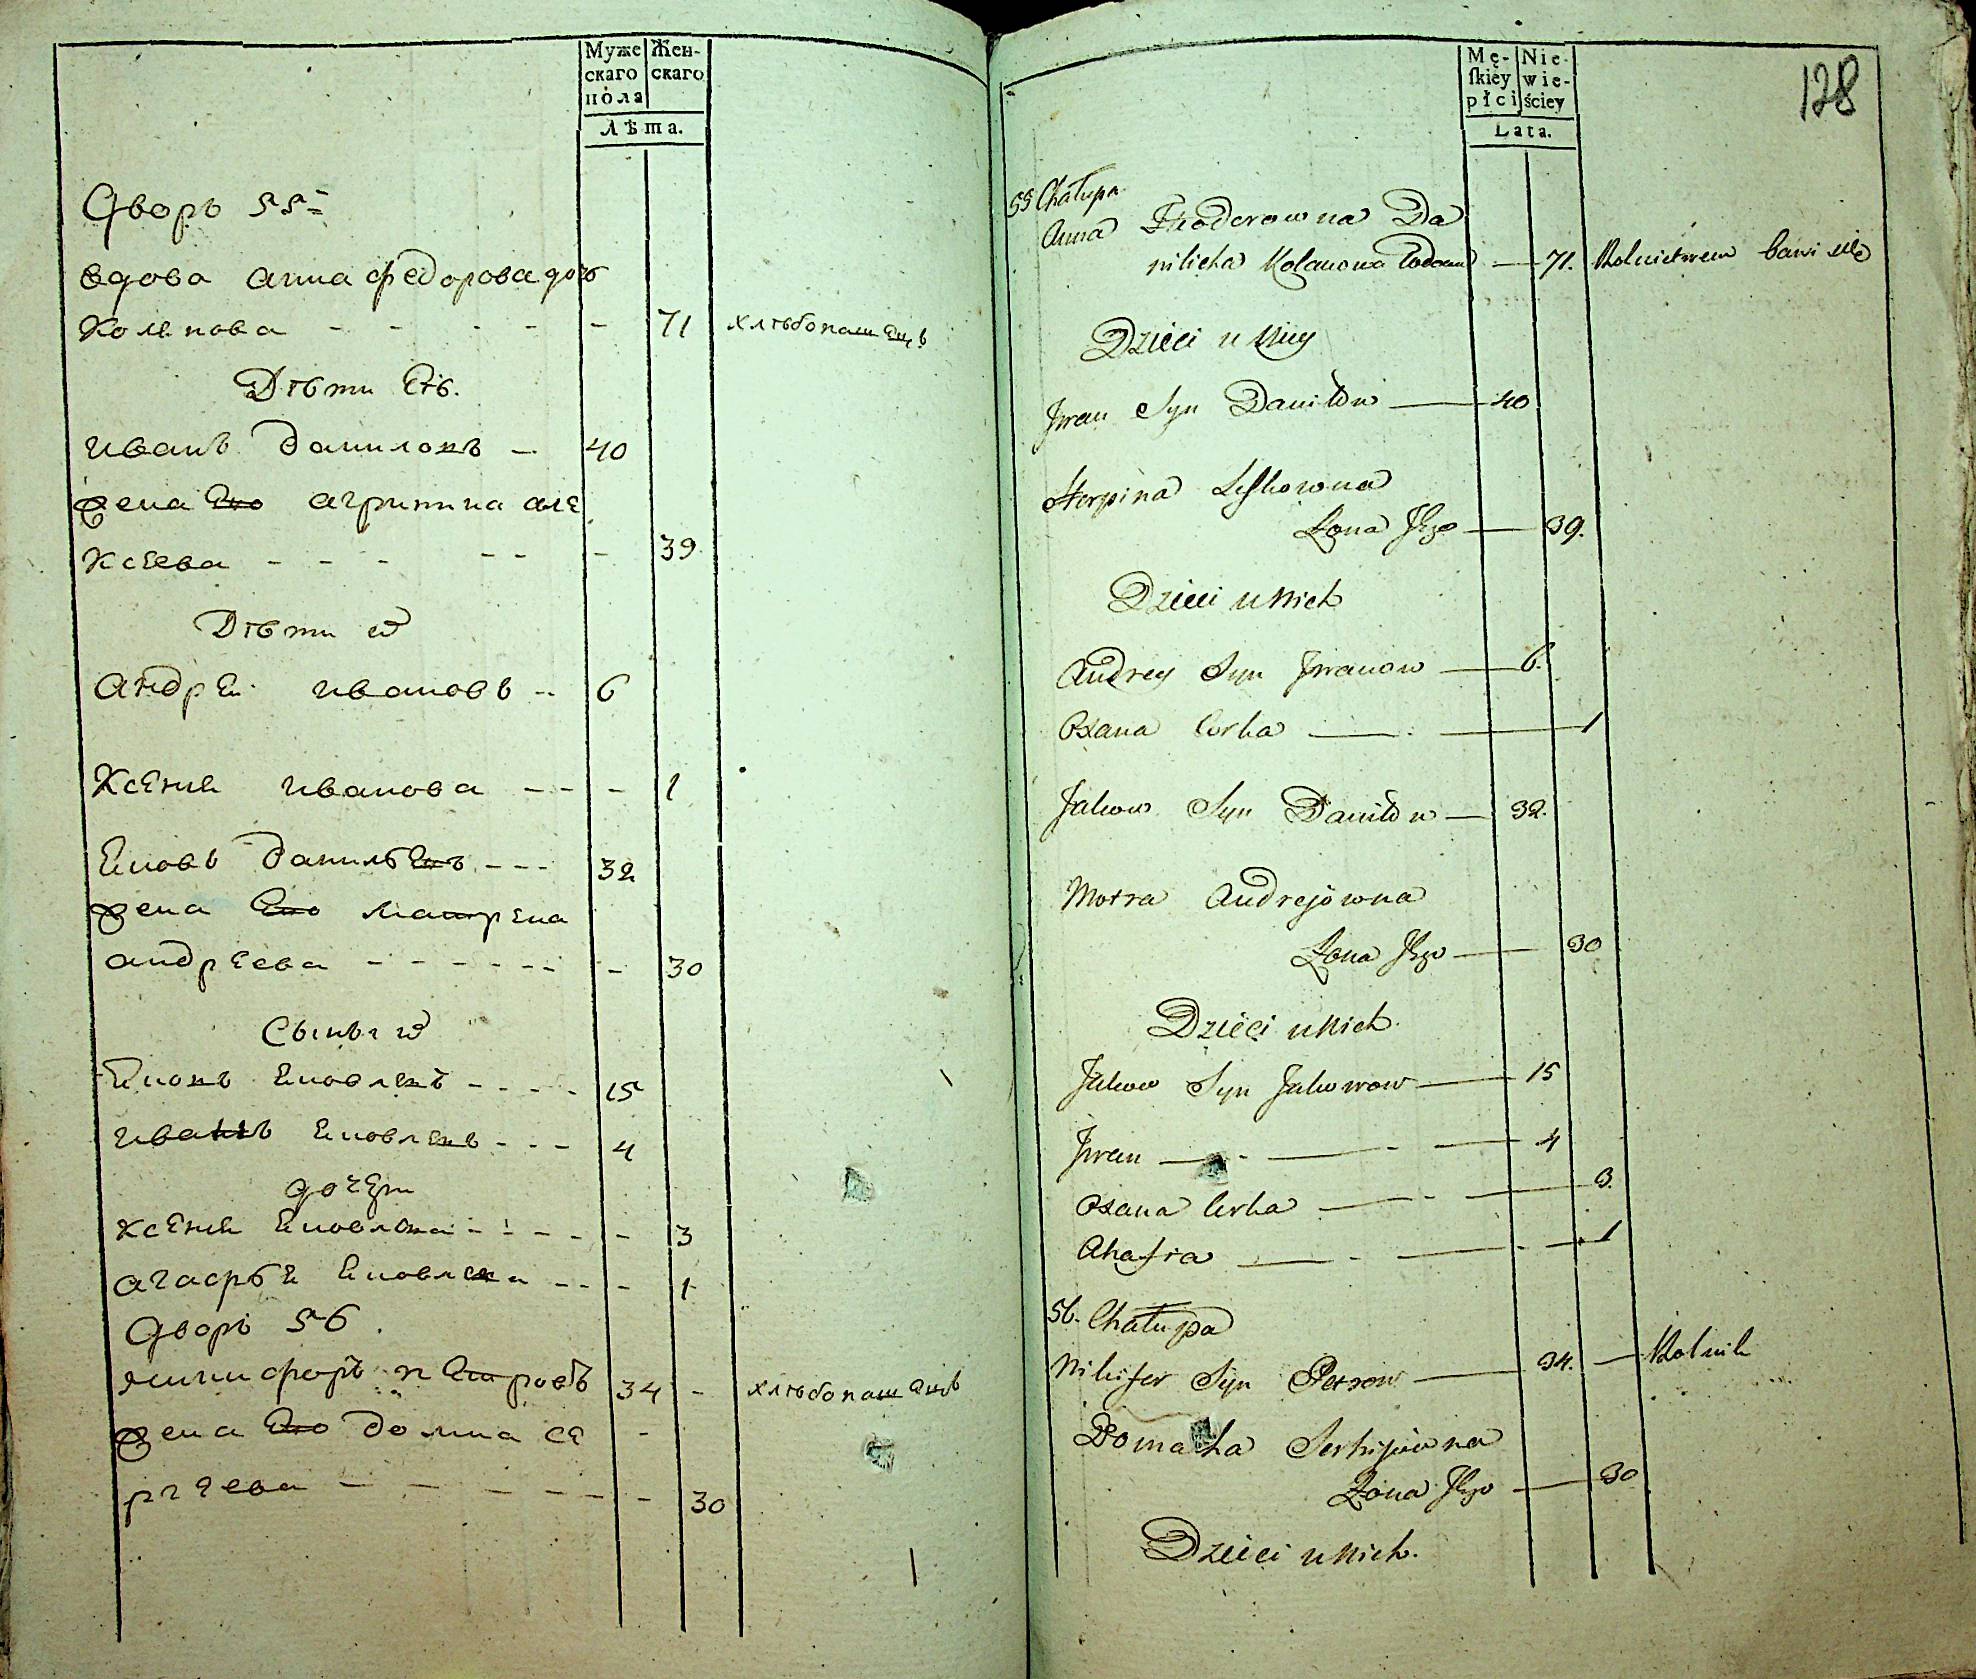 Муже Жен-
скаго скаго
пола
Лѣта.
Дворъ 55=
вдова анна федорова дочь
71 хлѣбопашецъ
Дѣти Еѣ.
иванъ даниловъ 40
жена Его агрипина але
ксеева 39
Дѣти их
андрей ивановъ 6
Ксения иванова 1
Яковъ данил 32
жена Его Матрена
андреева 30
Сыны их
Яковъ Яковлевъ 15
иванъ Яковлевъ 4
дочери
ксения Яковлева 3
агафья Яковлева 1
Дворъ 56.
никифоръ петровъ 34 хлѣбопашецъ
жена Его домна се
ргеева 30
128
Mę- Nie-
skiey wie-
płci ściey
Lata.
55 Chałupa
Anna Fiodorowna Da
nilicha wdowa 71. Rolnictwem bawi się
Dzieci u Niey
Jwan Syn Daniłow 40
Herpina Leskowna
Żona Jego 39.
Dzieci u Nich
Andrey Syn Jwanow 6.
Oxana Corka 1
Jakow Syn Daniłow 32.
Motra Andrejowna
Żona Jego 30
Dzieci u Nich.
Jakow Syn Jakowow 15
Jwan 4
Oxana Corka 3.
Ahafia 1
56. Chałupa
Nikifer Syn Petrow 34. Rolnik
Domaha Serhijowna
Żona Jego 30
Dzieci u Nich.